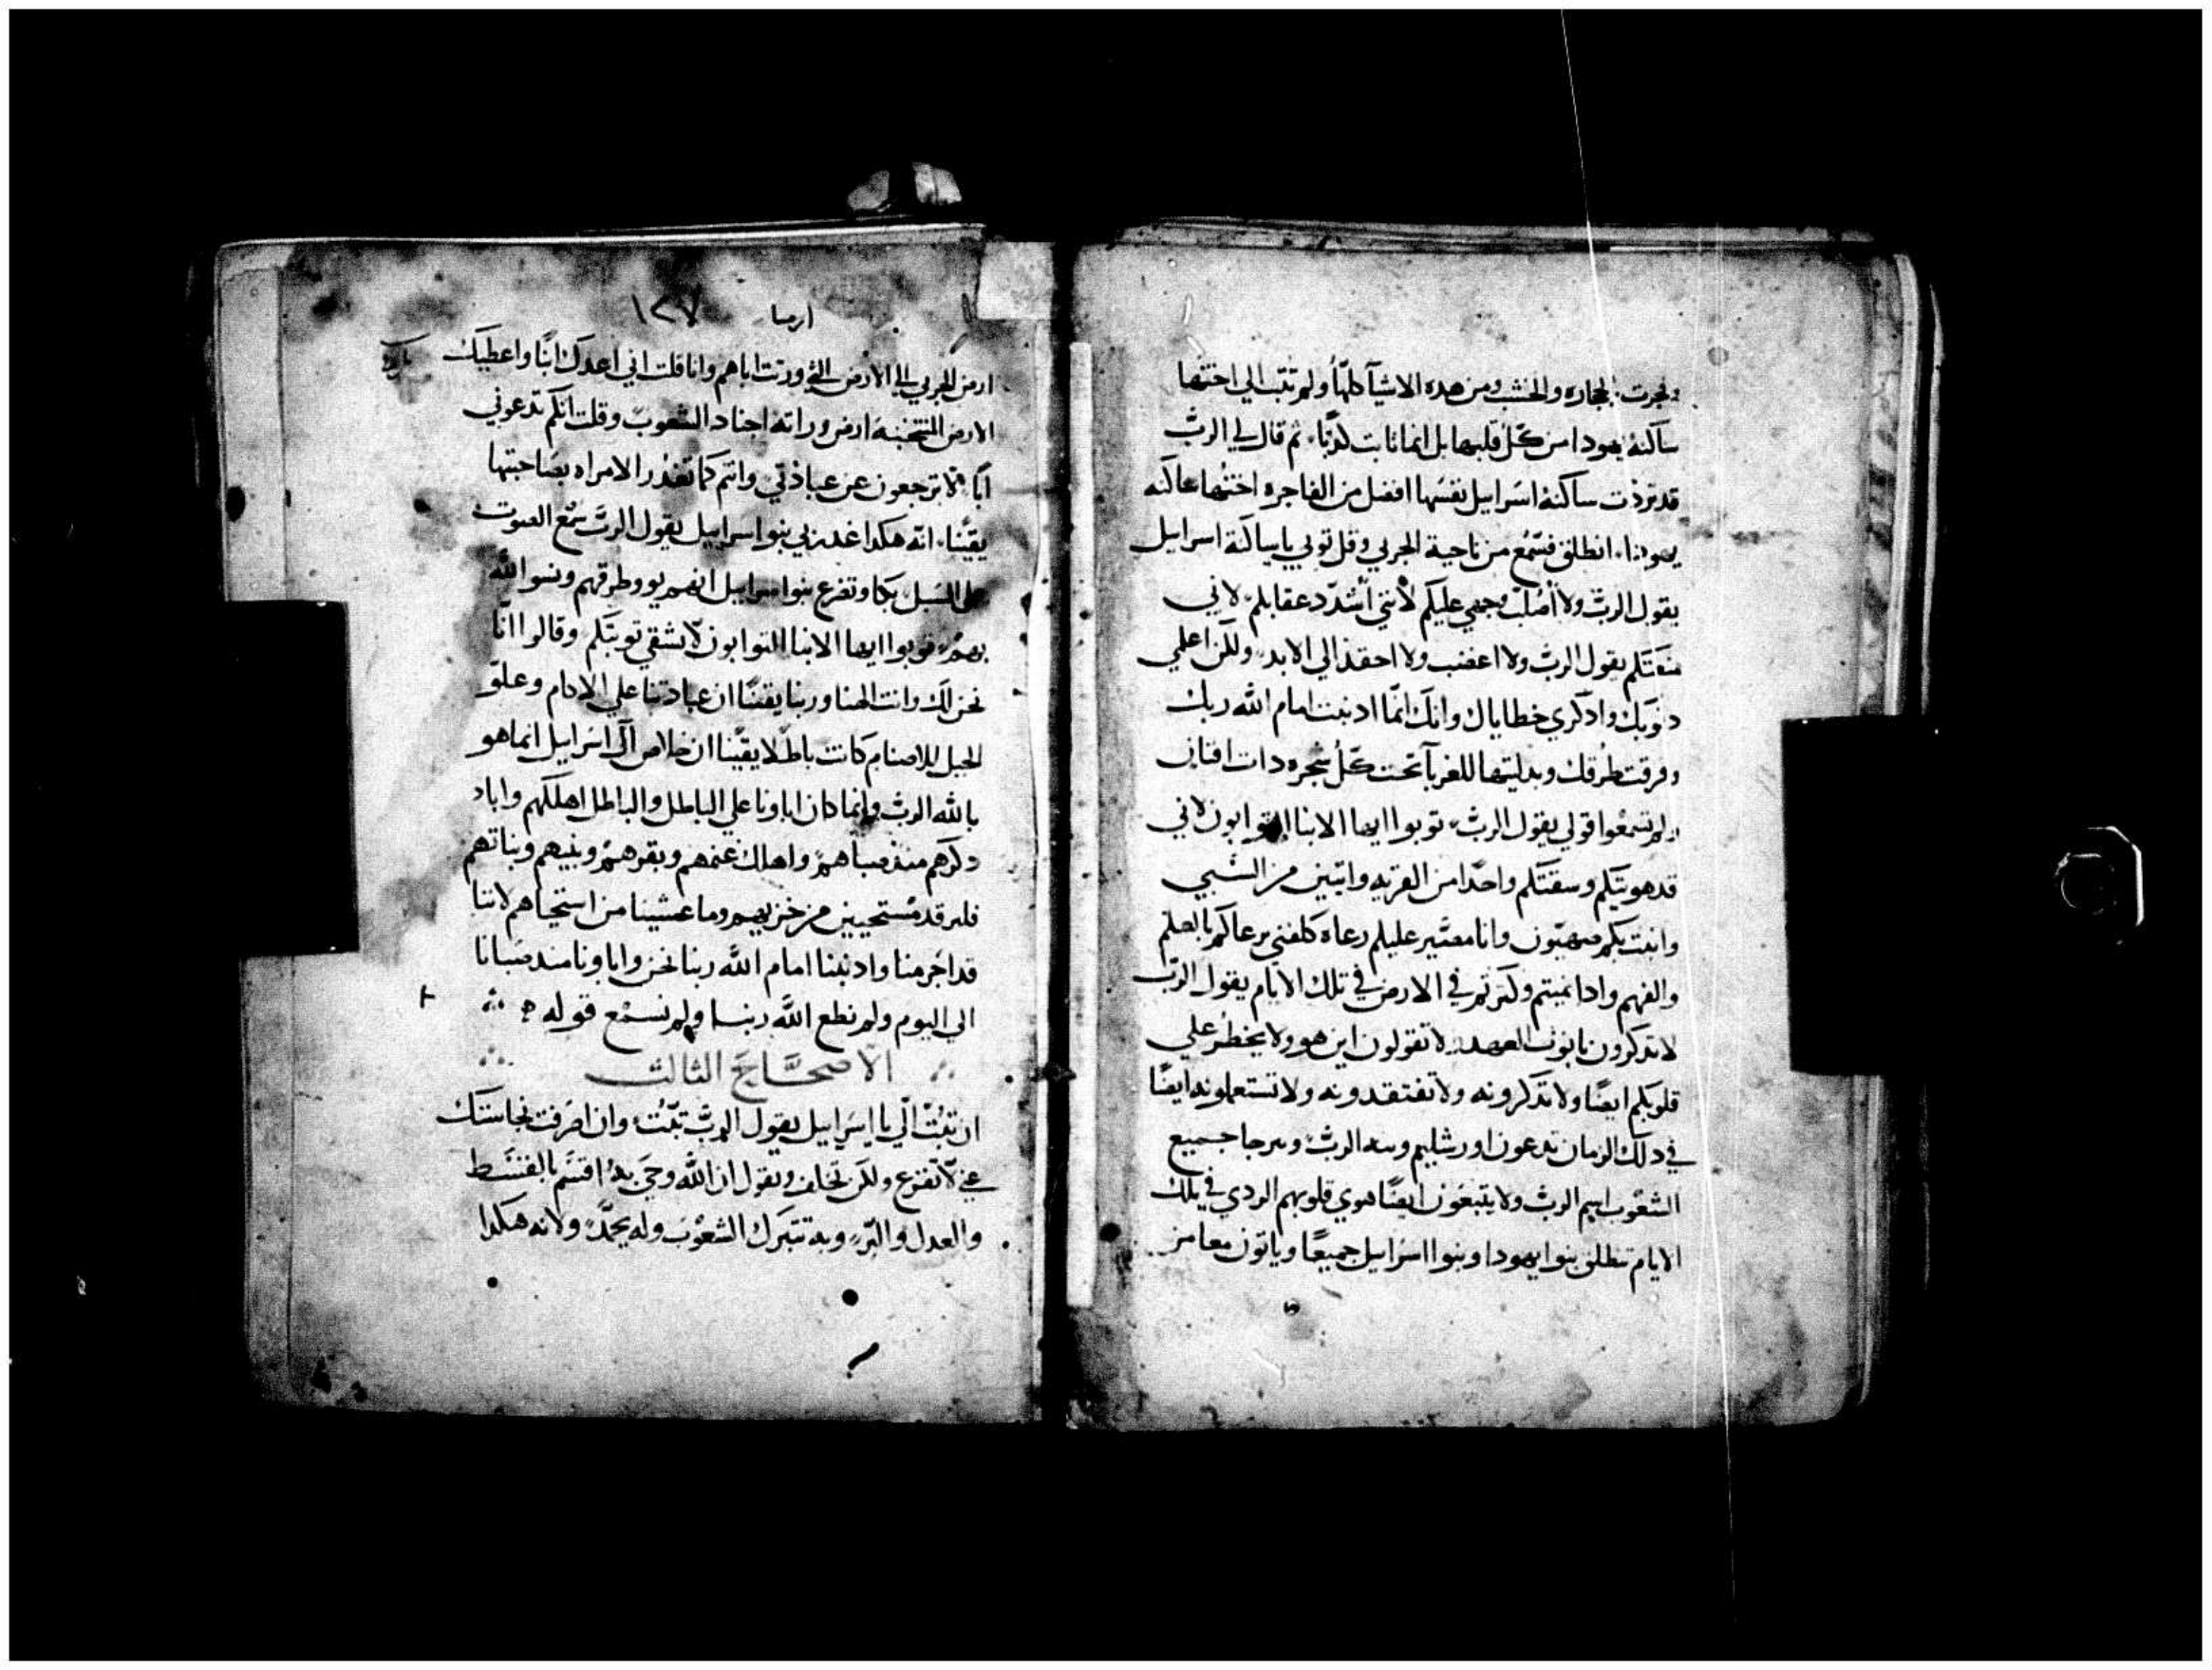 وفجرت بالحجاره والخشب ومن هده الاشيآ كلهّا ولم تتب الي اختها
ساكنة يهودا من كلّ قلبها بل انما تابت كدبًا، ثم قال لي الربّ
قد بررت ساكنة اسراييل نفسها افضل من الفاجره اختها ساكنه
يهودا، انطلق فسمّع من ناحية الجربي وقل توبي يا ساكنة اسراييل
يقول الربّ ولا أصُلب وجهي عليكم لأنني أشدّد عقابكم، لاني
يقول الربّ ولا اعضب ولا احقد الي الابد، ولكن اعلمي
دنوبك وادكري خطاياك وانك انمّا ادنبت امام اللّه ربك
وفرقت طرقك وبدلتيها للغربآ تحت كلّ شجره دات افنان
ولم تسمعوا قولي يقول الربّ، توبوا ايها الابنا التوابون لاني
قد هويتكم وسقتكم واحدًا من القريه واتنين من السبي
واتيت بكم صهيون وانا مصَير عليكم رعاه كلفتي يرعاكم بالعلم
والفهم وادا نميتم وكترتم في الارض في تلك الايام يقول الربّ
لا تدكرون تابوت العهد، لا تقولون اين هو ولا يخطر علي
قلوبكم ايضًا ولا تدكرونه ولا تفتقدونه ولا تستعملونه ايضًا
في دلك الزمان تدعون اورشليم الربّ، جميع
الشعوب اسم الربّ ولا يتبعون ايضًا هوي قلوبهم الردي في تلك
الايام تنطلق بنوا يهودا وبنوا اسراييل جميعًا وياتون معا من
ارميا ١٢٧
ارض الجربي الي الارض التي ورتت اباهم وانا قلت اني اعدك ابنًا واعطيك
الارض المنتخبه ارض وراته اجناد الشعوب وقلت انكم تدعوني
ابًا، لا ترجعون عن عبادتي وانتم كما تغدر الامراه بصاحبتها
يقيّنا، انّه هكدا غدر بي بنوا اسراييل يقول الربّ سُمع الصوت
علي السبل بكا وتضرع بنوا اسراييل طرقهم ونسوا اللّه
ربهم، توبوا ايها الابنا التوابون لاشفي توبتكم وقالوا انّا
نحن لك وانت الهنا وربنا يقينًا ان عبادتنا علي الاكام وعلوّ
الجبل للاصنام كانت باطلا يقيّنا ان خلاص آل اسراييل انما هو
باللّه الربّ وانما كان اباونا علي الباطل والباطل اهلكهم واباد
دكرهم مند صباهم، واهلك غنمهم وبقرهم وبنيهم وبناتهم
فلنرقد مستحيين من خزيهم وما عمشينا من استحياهم لاننا
قد اجرمنا وادنبنا امام اللّه ربنا نحن واباونا مند صبانا
الي اليوم ولم نطع اللّه ربنا ولم نسمع قوله
الاصحَّاحَ الثالث
ان تبُتْ اليّ يا اسراييل يقول الربّ تبّتُ، وان اصَرفت نجاستك
عني لا تفزع ولكن تحلف وتقول ان اللّه وحيَ به، اقسَم بالقسَط
والعدل والبّر، وبه تتبرك الشعوْب وله يحمدّ، ولانه هكدا